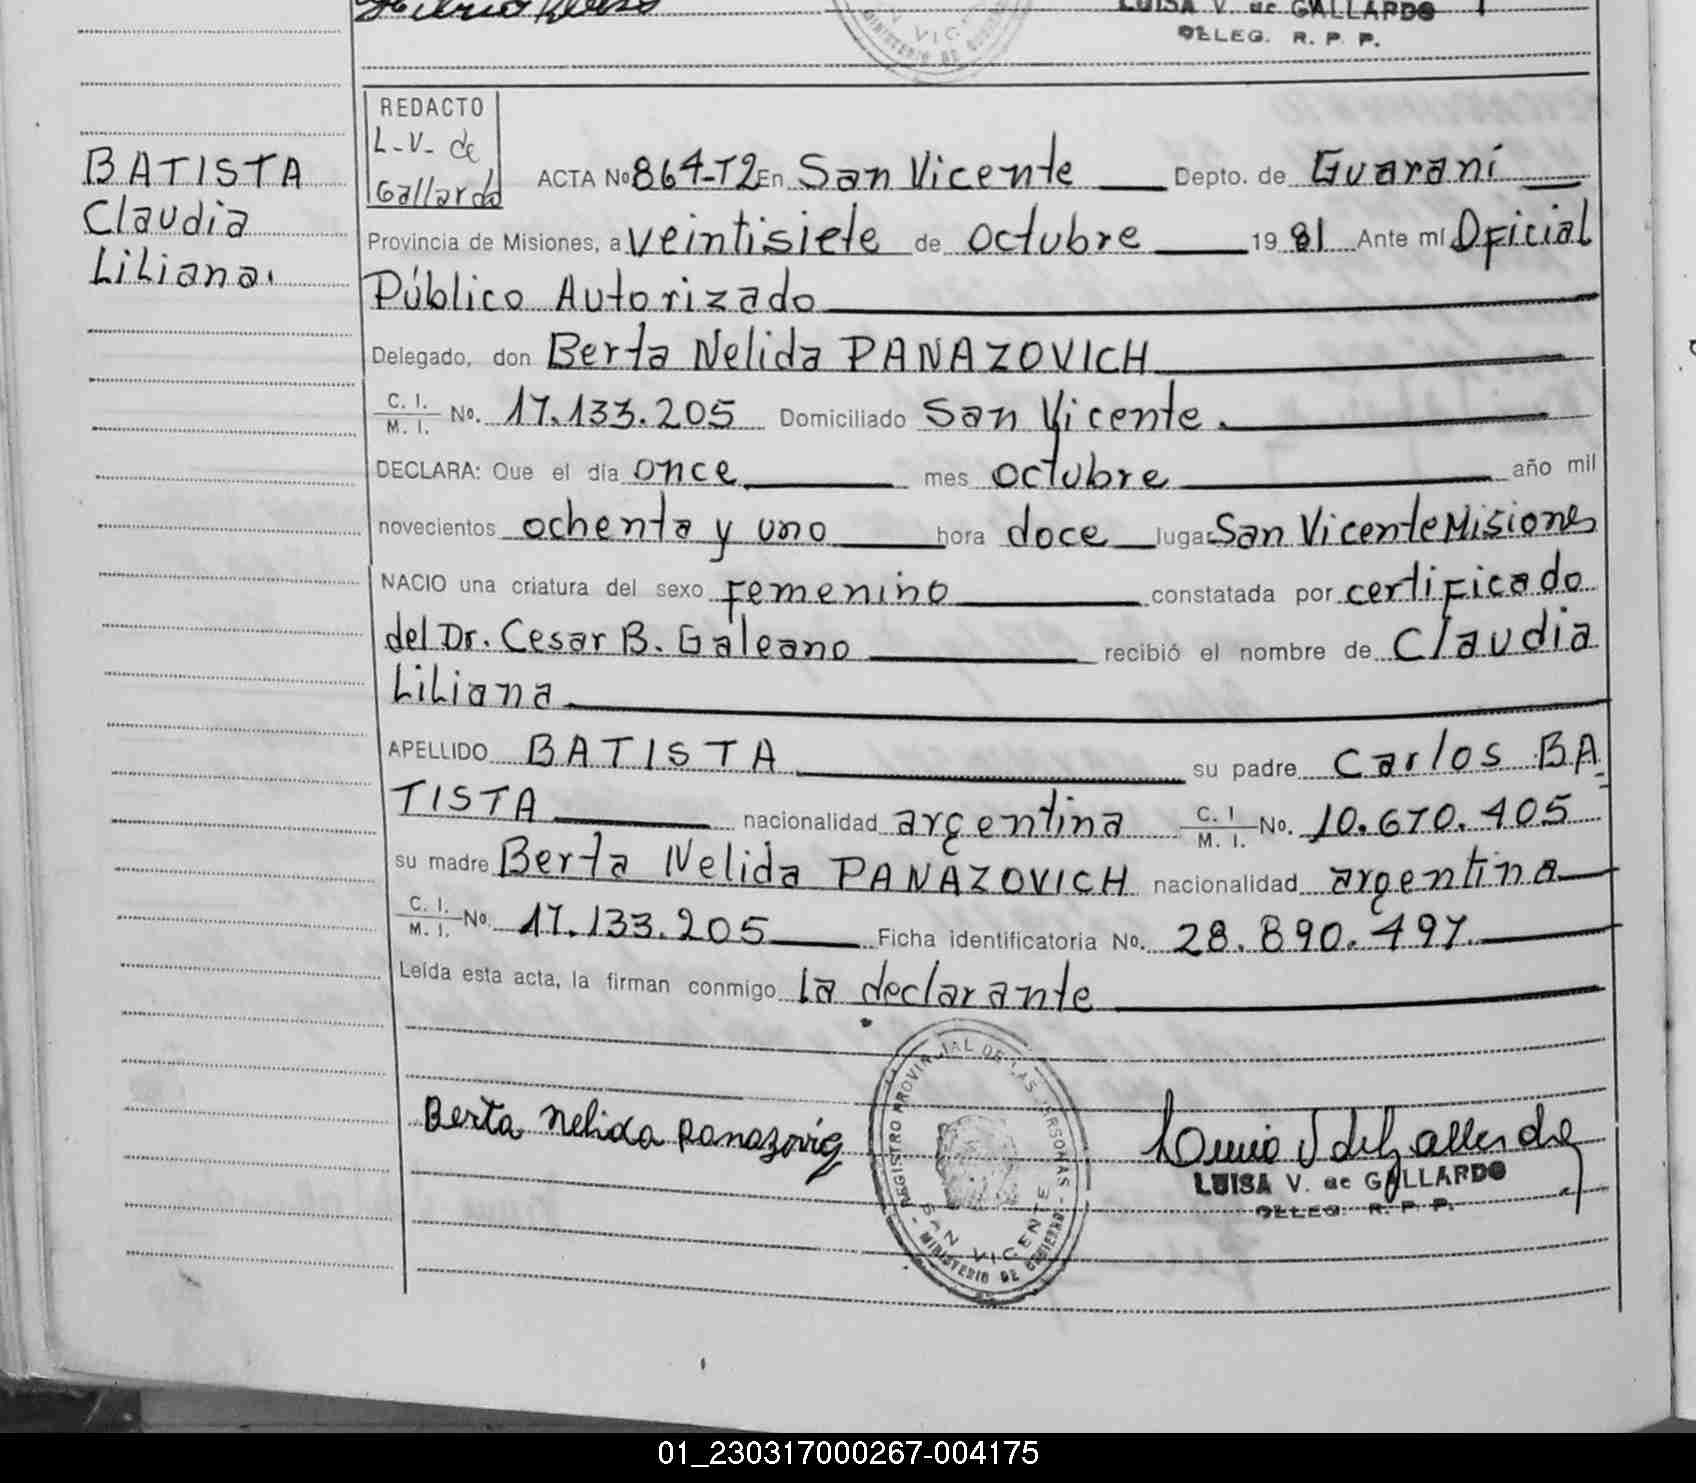 LUISA V. de GALLARDO
DELEG. R. P. P.
BATISTA
Claudia
Liliana.
REDACTO
L-V- de
Gallardo
ACTA No 864-T2 En San Vicente Depto. de Guaraní
Provincia de Misiones, a veintisiete de octubre 19 81 Ante mí Oficial
Público Autorizado
Delegado, don Berta Nelida PANAZOVICH
C. I. / M. I. No. 17.133.205 Domiciliado San Vicente.
DECLARA: Que el día once mes octubre año mil
novecientos ochenta y uno hora doce lugar San Vicente Misiones
NACIO una criatura del sexo Femenino constatada por certificado
del Dr. Cesar B. Galeano recibió el nombre de Claudia
Liliana
APELLIDO BATISTA su padre Carlos BA
TISTA nacionalidad argentina C. I. / M. I. No. 10.670.405
su madre Berta Nelida PANAZOVICH nacionalidad argentina
C. I. / M. I. No. 17.133.205 Ficha identificatoria No. 28.890.497.
Leída esta acta, la firman conmigo la declarante
Berta Nelida Panazovig
REGISTRO PROVINCIAL DE LAS PERSONAS
SAN VICENTE
MINISTERIO DE GOBIERNO
LUISA V. de GALLARDO
DELEG. R. P. P.
01_230317000267-004175